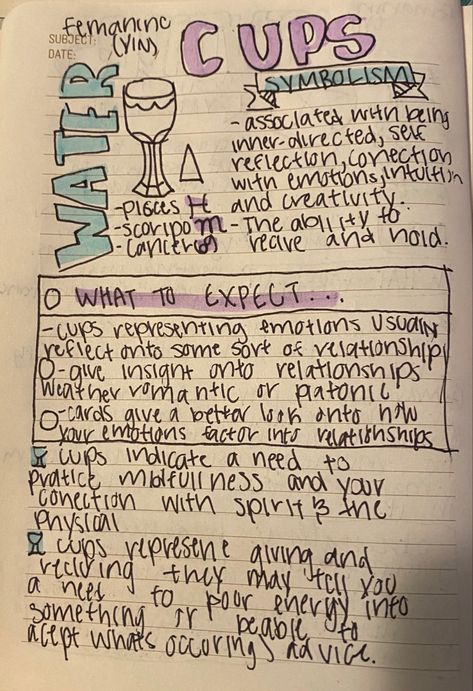 Femaninc
(YIN)
SUBJECT:
DATE:
CUPS
WATER
SYMBOLISM
-associated with being
inner-directed, self
reflection, conection
with emotions, intuition
and creativity.
-The ability to
recive and hold.
-pisces ♓
-scoripo ♏
-cancer ♋
WHAT TO EXPECT...
-cups representing emotions usually
reflect onto some sort of relationship
-give insight onto relationships
weather romantic or platonic
-cards give a better look onto how
your emotions factor into relatiohships
cups indicate a need to
pratice and your
conection with spirit & the
physical
cups represene giving and
reciving they may tell you
a need to poor energy into
something or peable to
acept whats occuring advice.